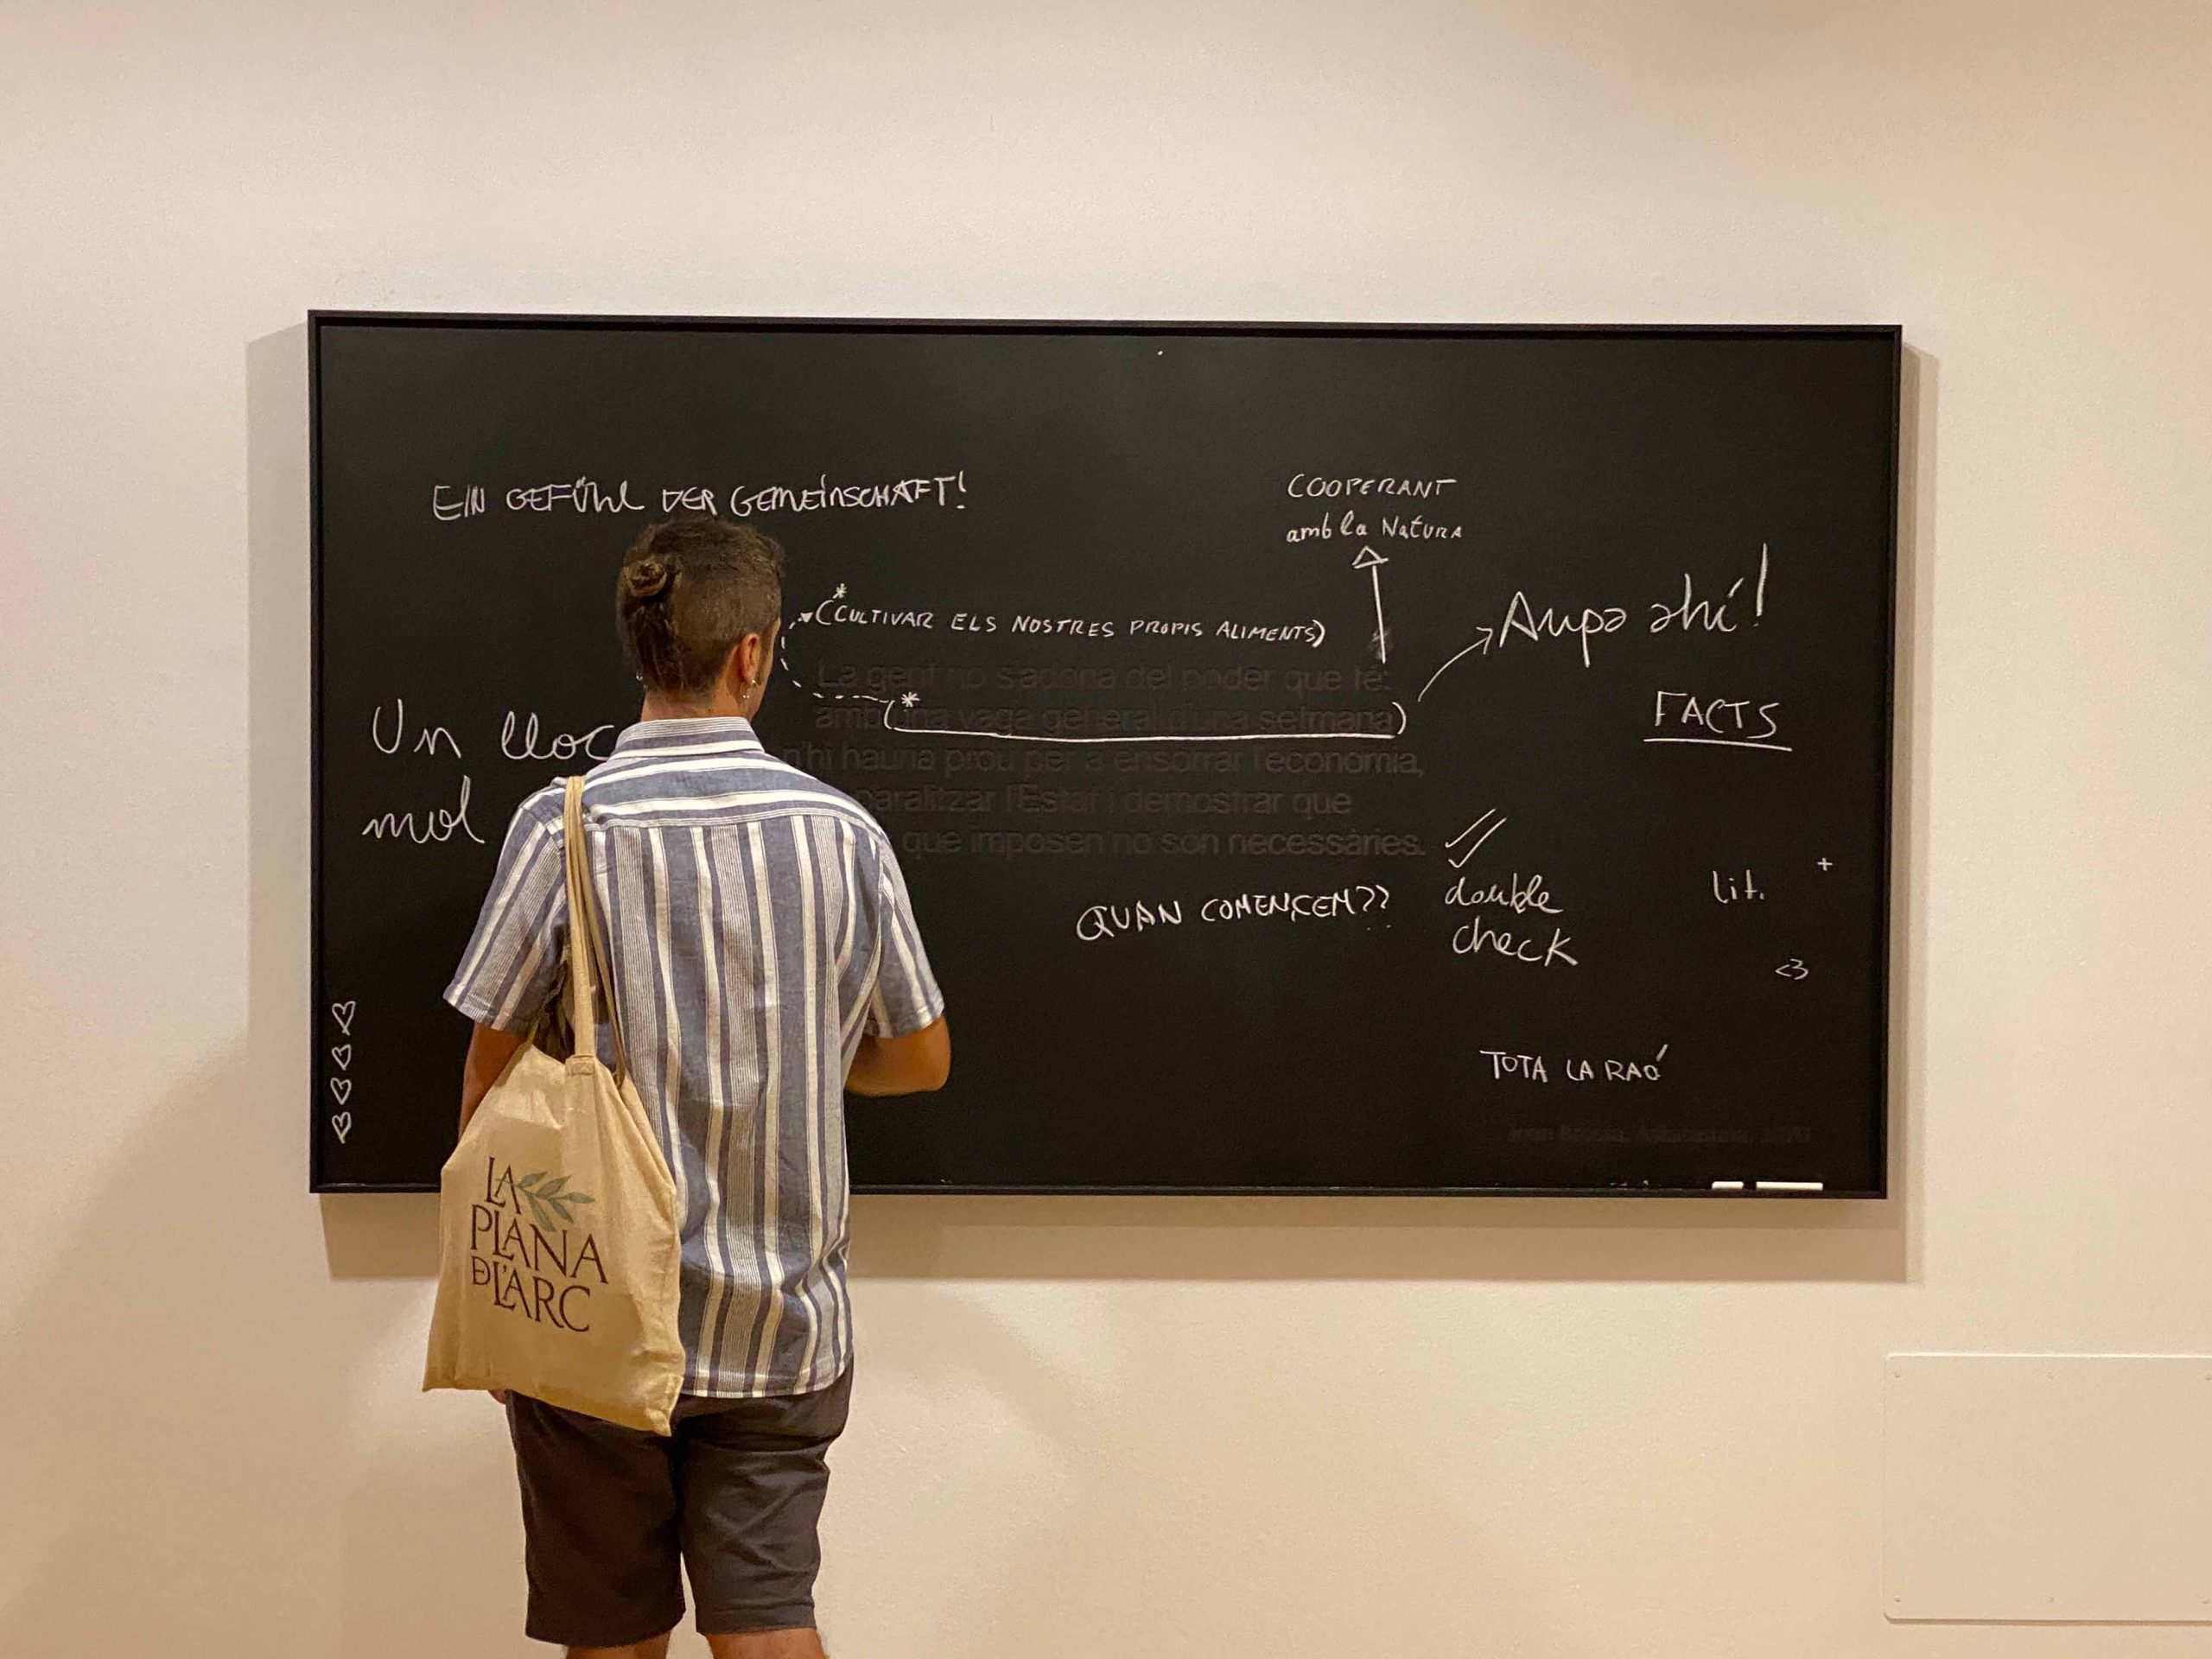 EIN GEFÜHL DER GEMEINSCHAFT!
COOPERANT
amb la NATURA
(*CULTIVAR ELS NOSTRES PROPIS ALIMENTS)
Aupa ahí!
FACTS
Un lloc
mol
La gent no s'adona del poder que té:
amb (*una vaga general d'una setmana)
n'hi hauria prou per a ensorrar l'economia,
paralitzar l'Estat i demostrar que
que imposen no son necessàries.
QUAN COMENÇEM??
double
check
lit.
+
<3
TOTA LA RAÓ
LA
PLANA
DE L'ARC